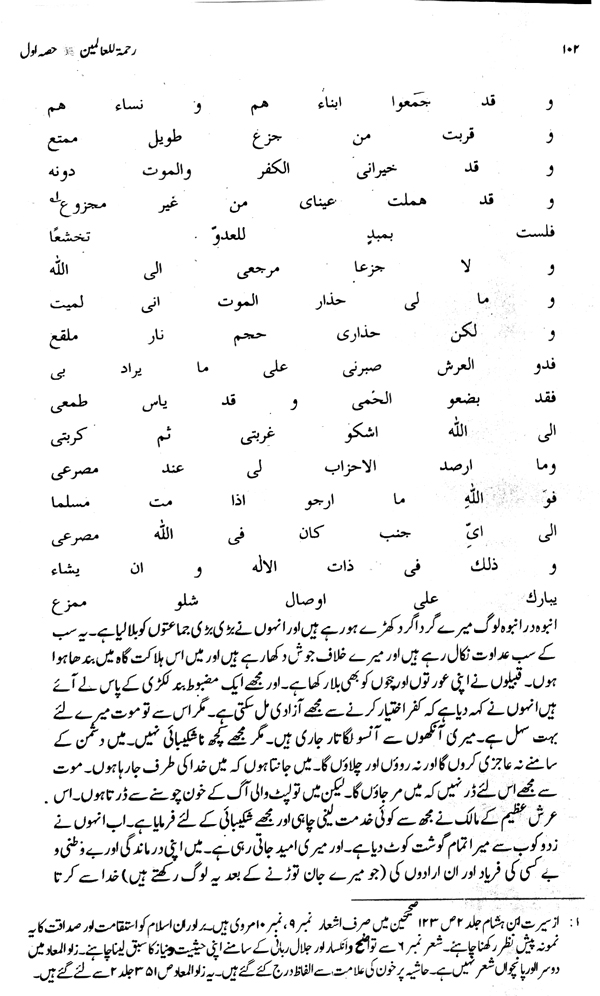 ۱۰۲ رحمۃ للعالمین ﷺ حصہ اول
و قد جمعوا ابناء هم و نساء هم
و قربت من جزع طويل ممتع
و قد خيرانى الكفر والموت دونه
و قد هملت عيناى من غير مجزوع ۱؎
فلست بمبدٍ للعدوّ تخشعًا
و لا جزعا مرجعى الى الله
و ما لى حذار الموت انى لميت
و لكن حذارى حجم نار ملقع
فدو العرش صبرنى على ما يراد بى
فقد بضعو الحُمى و قد ياس طمعى
الى الله اشكو غربتى ثم كربتى
وما ارصد الاحزاب لى عند مصرعى
فوَ اللهِ ما ارجو اذا مت مسلما
الى ایِّ جنب كان فى الله مصرعى
و ذلك فى ذات الاله و ان يشاء
يبارك على اوصال شلو ممزع
انبوہ در انبوہ لوگ میرے گردا گرد کھڑے ہو رہے ہیں اور انہوں نے بڑی بڑی جماعتوں کو بلا لیا ہے۔ یہ سب
کے سب عداوت نکال رہے ہیں اور میرے خلاف جوش دکھا رہے ہیں اور میں اس ہلاکت گاہ میں بندھا ہوا
ہوں۔ قبیلوں نے اپنی عورتوں اور بچوں کو بھی بلا رکھا ہے۔ اور مجھے ایک مضبوط بند لکڑی کے پاس لے آئے
ہیں انہوں نے کہہ دیا ہے کہ کفر اختیار کرنے سے مجھے آزادی مل سکتی ہے۔ مگر اس سے تو موت میرے لئے
بہت سہل ہے۔ میری آنکھوں سے آنسو لگاتار جاری ہیں۔ مگر مجھے کچھ ناشکیبائی نہیں۔ میں دشمن کے
سامنے نہ عاجزی کروں گا اور نہ روؤں اور چلاؤں گا۔ میں جانتا ہوں کہ میں خدا کی طرف جا رہا ہوں۔ موت
سے مجھے اس لئے ڈر نہیں کہ میں مر جاؤں گا۔ لیکن میں تو لپٹ والی آگ کے خون چوسنے سے ڈرتا ہوں۔ اس
عرش عظیم کے مالک نے مجھ سے کوئی خدمت لینی چاہی اور مجھے شکیبائی کے لئے فرمایا ہے۔ اب انہوں نے
زدو کوب سے میرا تمام گوشت کوٹ دیا ہے۔ اور میری امید جاتی رہی ہے۔ میں اپنی درماندگی اور بے وطنی و
بے کسی کی فریاد اور ان ارادوں کی (جو میرے جان توڑنے کے بعد یہ لوگ رکھتے ہیں) خدا سے کرتا
۱: از سیرت ابن ہشام جلد ۲ ص ۱۲۳ صحیحین میں صرف اشعار نمبر ۹، نمبر ۱۰ مروی ہیں۔ برادران اسلام کو استقامت اور صداقت کا یہ
نمونہ پیش نظر رکھنا چاہئے۔ شعر نمبر ۶ سے تواضع و انکسار اور جلال ربانی کے سامنے اپنی حیثیت و نیاز کا سبق لینا چاہئے۔ زاد المعاد میں
دوسرا اور پانچواں شعر نہیں ہے۔ حاشیہ پر خون کی علامت سے الفاظ درج کئے گئے ہیں۔ یہ زاد المعاد ص ۳۵۱ جلد ۲ سے لئے گئے ہیں۔